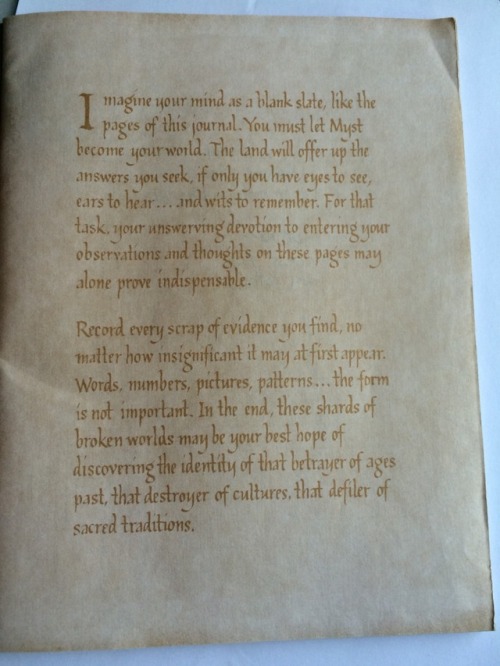 Imagine your mind as a blank slate, like the
pages of this journal. You must let Myst
become your world. The land will offer up the
answers you seek, if only you have eyes to see,
ears to hear... and wits to remember. For that
task, your unswerving devotion to entering your
observations and thoughts on these pages may
alone prove indispensable.
Record every scrap of evidence you find, no
matter how insignificant it may at first appear.
Words, numbers, pictures, patterns... the form
is not important. In the end, these shards of
broken worlds may be your best hope of
discovering the identity of that betrayer of ages
past, that destroyer of cultures, that defiler of
sacred traditions.